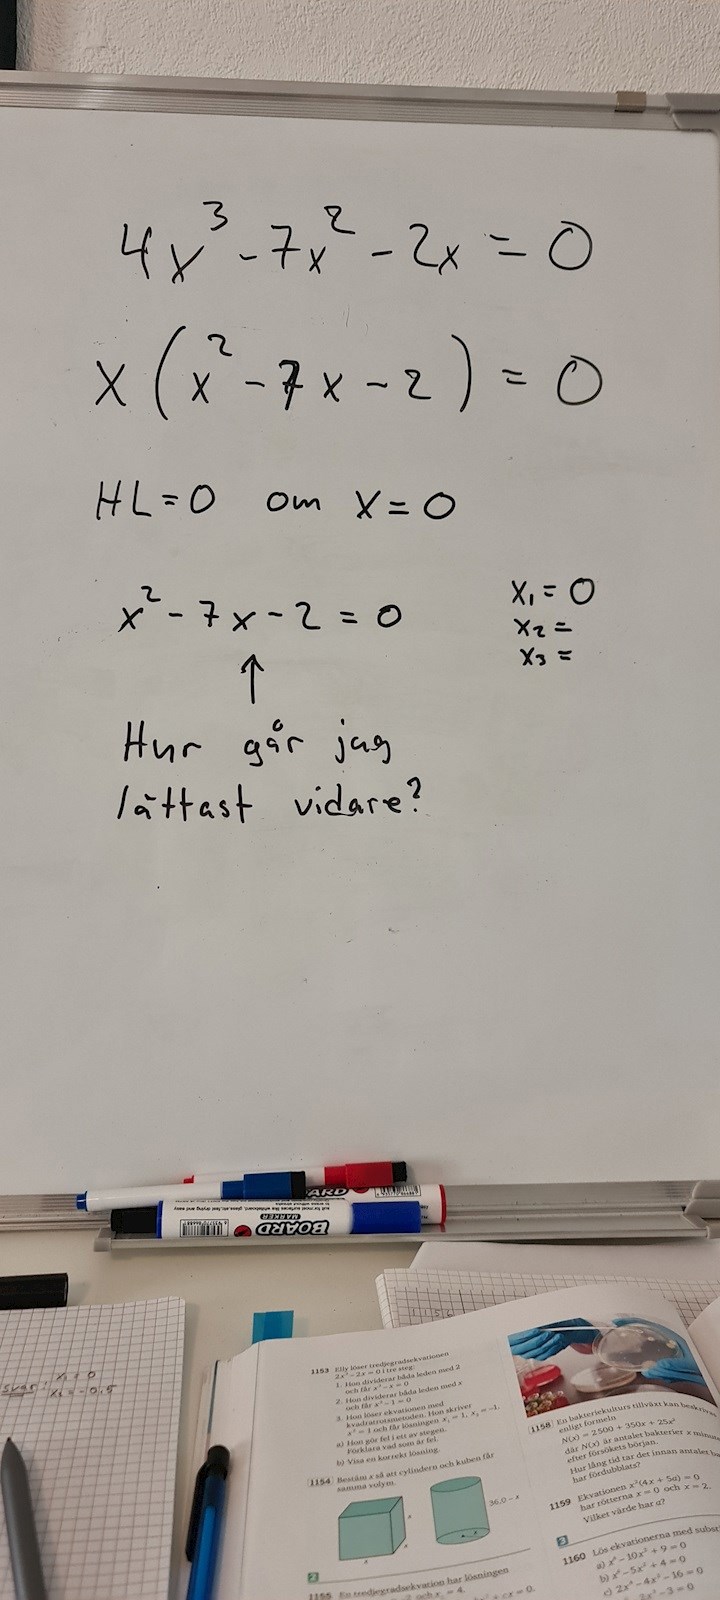 4x³ - 7x² - 2x = 0
x(x² - 7x - 2) = 0
HL = 0 om x = 0
x² - 7x - 2 = 0
x₁ = 0
x₂ =
x₃ =
↑
Hur går jag
lättast vidare?
BOARD
MARKER
svar: x₁ = 0
x₂ = -0,5
1153 Elly löser tredjegradsekvationen
2x³ - 2x = 0 i tre steg:
1. Hon dividerar båda leden med 2
och får x³ - x = 0
2. Hon dividerar båda leden med x
och får x² - 1 = 0
3. Hon löser ekvationen med
kvadratrotsmetoden. Hon skriver
x² = 1 och får lösningen x₁ = 1, x₂ = -1.
a) Hon gör fel i ett av stegen.
Förklara vad som är fel.
b) Visa en korrekt lösning.
1154 Bestäm x så att cylindern och kuben får
samma volym.
36,0 - x
x
x
2
1155 En tredjegradsekvation har lösningen
och x₃ = 4.
+ cx = 0.
1158 En bakteriekulturs tillväxt kan
enligt formeln
N(x) = 2500 + 350x + 25x²
där N(x) är antalet bakterier x
efter försökets början.
Hur lång tid tar det innan antalet
har fördubblats?
1159 Ekvationen x²(4x + 5a) = 0
har rötterna x = 0 och x = 2.
Vilket värde har a?
3
1160 Lös ekvationerna med
a) x⁴ - 10x² + 9 = 0
b) x⁴ - 5x² + 4 = 0
c) 2x⁴ - 4x² - 16 = 0